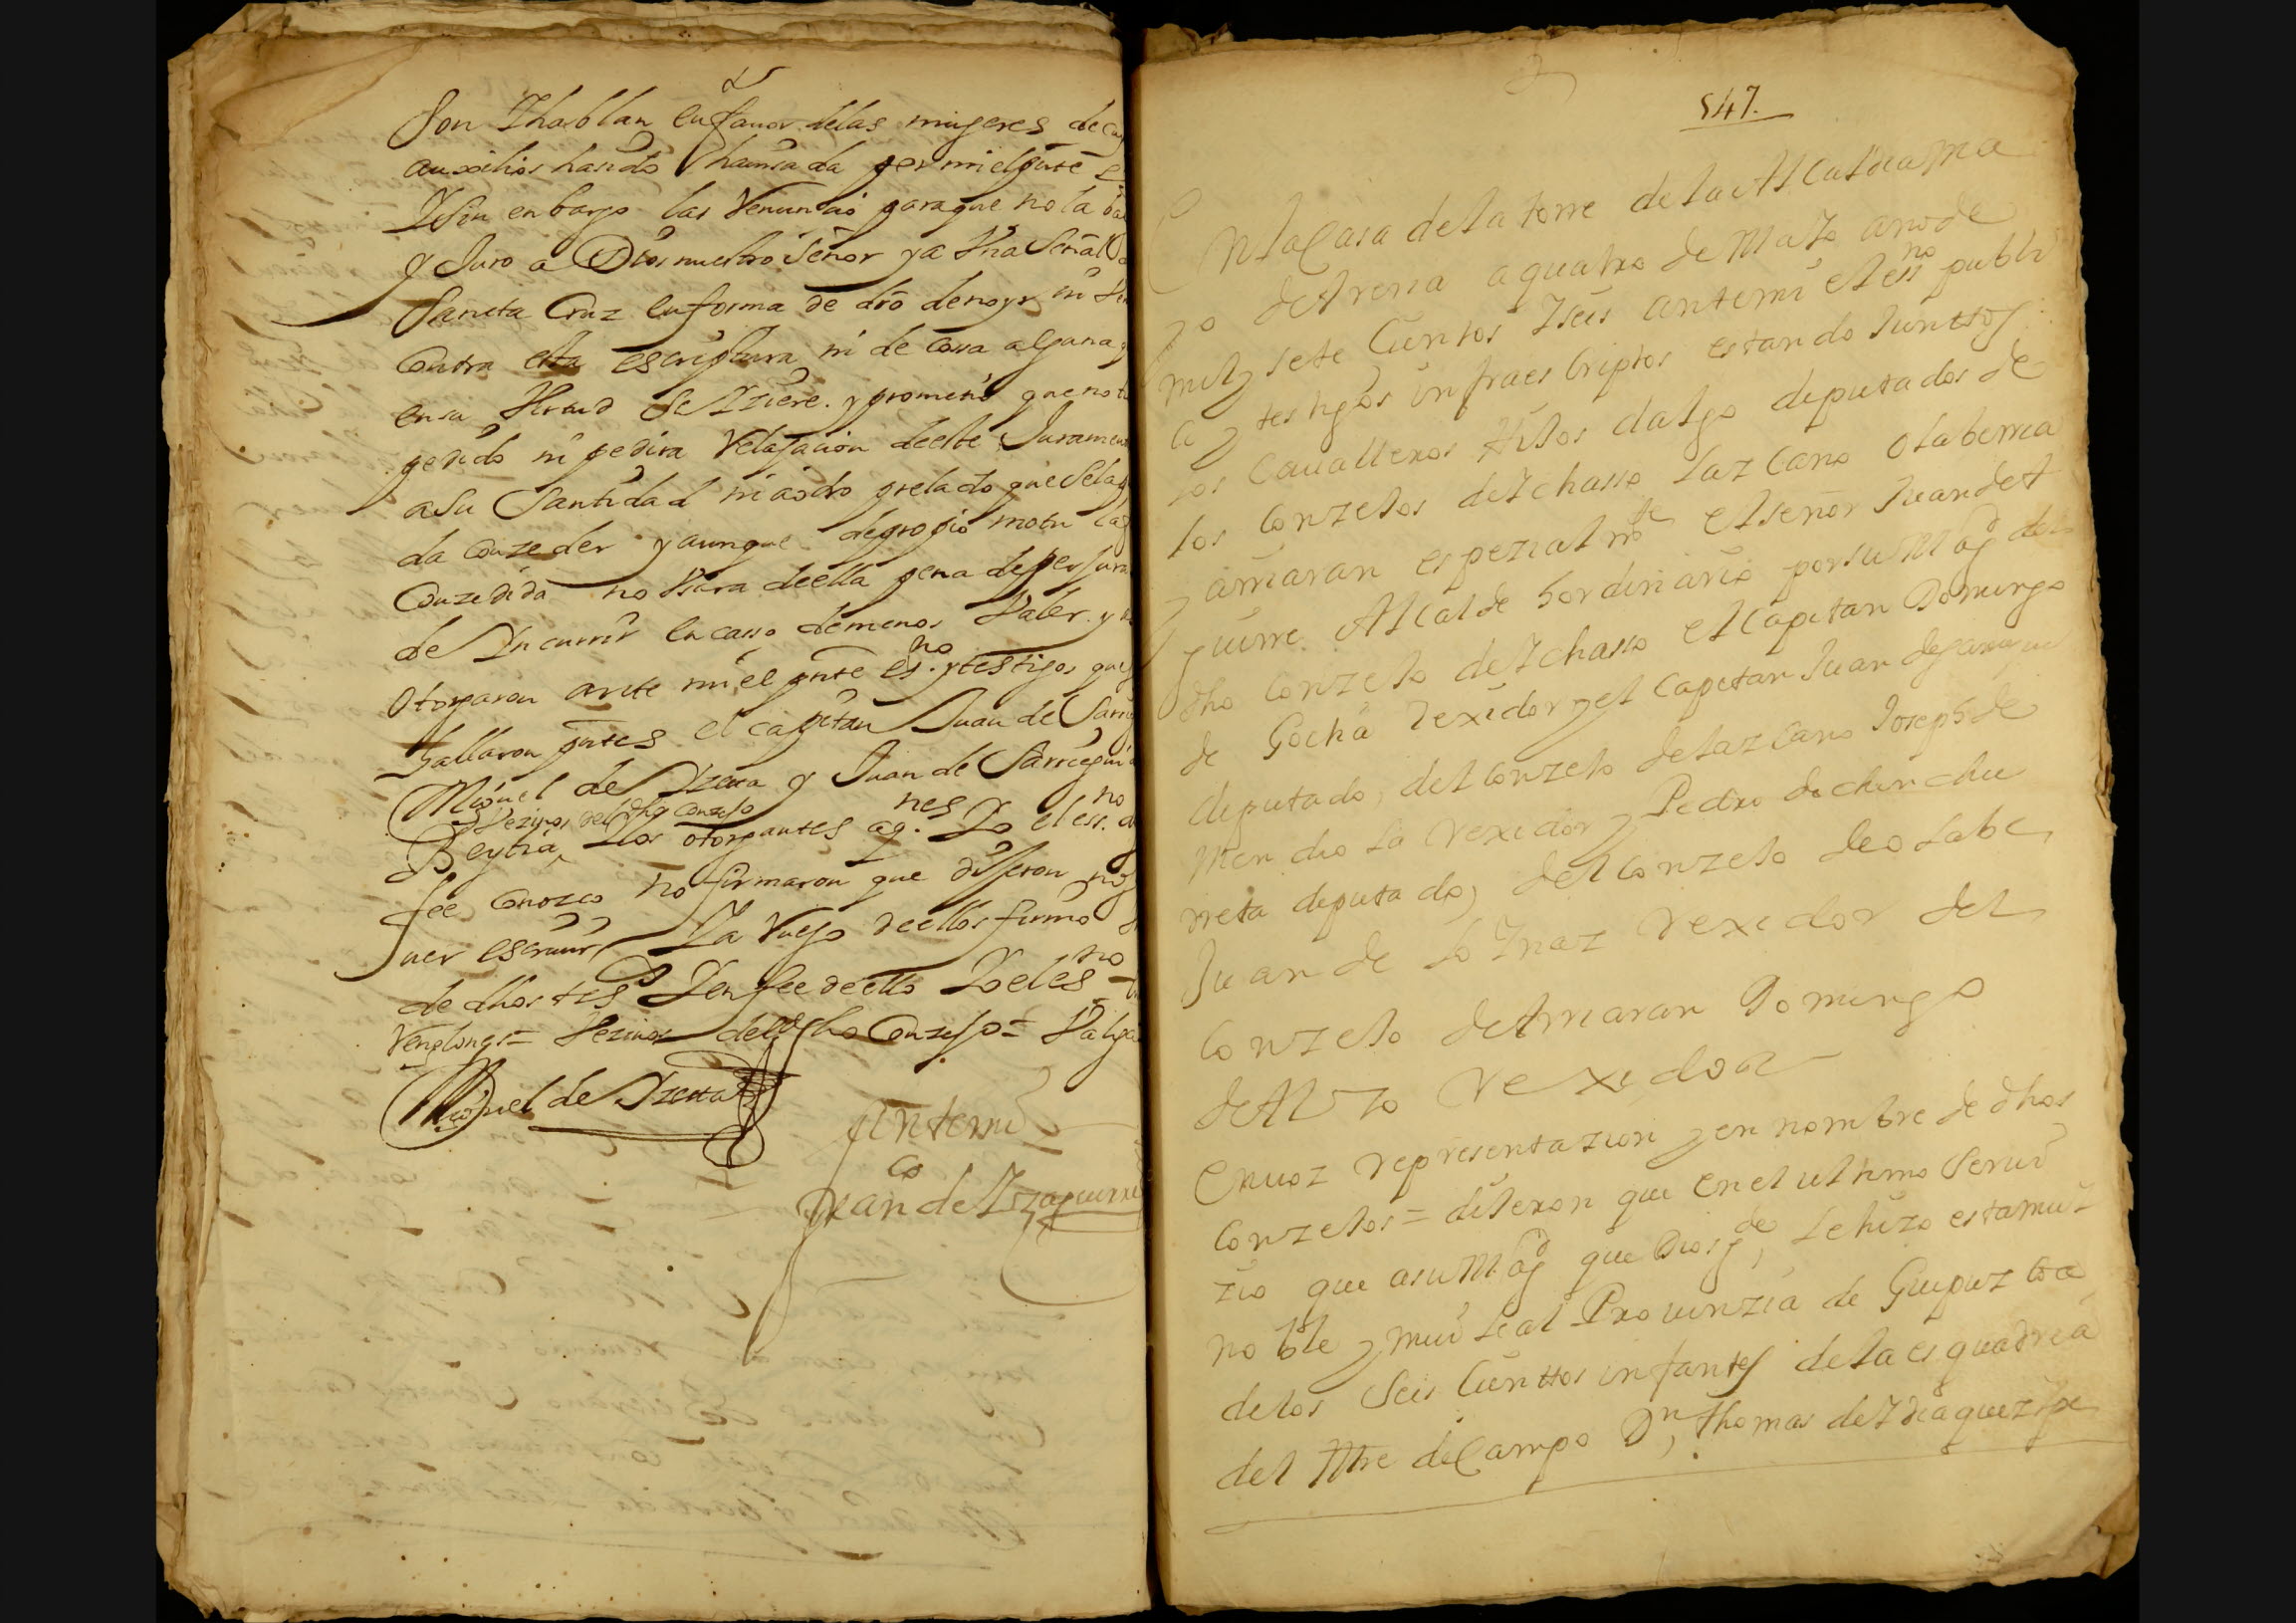 son Y hablan en fauor delas mugeres de
auxilios hasido hauisada por mi el pnte
Y sin enbargo las Renunçio paraque no la
y Juro a Dios nuestro Señor y a Vna Señal
Sancta Cruz en forma de dro de no yr ni
contra esta escriptura ni de cossa alguna
en su Virtud se Yziere. y prometio que no
pedido ni pedira Relajacion de este Jurame
a su Santidad ni a otro prelado que se la
da conzeder y aunque de propio motu
conzedida no Vsara de ella pena de perjura
de Yncurrir en casso de menos Valer. y
otorgaron ante mi el pnte esno. y testigos que
hallaron pntes el capitan Juan de
Miguel de Yzeta y Juan de Sarriegui
Vezinos del dho conzejo
Beytia, Los otorgantes aq.nes Yo el essno.
fee conozco no firmaron que dijeron no
uer escriuir, Y a Ruego de ellos firmo
de dhos tts Y en fee de ello Yo el esno
Renglons = Vezinos del dho Conzejo = Valga
Miguel de Yzeta
Antemi
Juan de Yzaguirre
547.
En la Casa de la torre de la Alcaldia ma
yo de Areria a quatro de Mayo año de
mil y sete Cientos Y seis antemi el essno publi
co y testigos infraescriptos estando Junttos
los Caualleros hijos dalgo deputados de
los Conzejos de Ychasso Lazcano Olaberria
y arriaran espezialmte el señor Juan de A
guirre Alcalde hordinario por su Magd del
dho Conzejo de Ychasso el Capitan Domingo
de Goiha rexidor y el Capitan Juan de
deputado, del Conzejo de Lazcano Joseph de
Mendiola rexidor y Pedro de chinchu
rreta deputado, del Conzejo de olabe
Juan de lo Ynaz rexidor del
Conzejo de Arriaran Domingo
de Alzo rexidor
En uoz representazion y en nombre de dhos
Conzejos = dijeron que en el ultimo serui
zio que a su Magd que Dios gde, le hizo esta mui
noble y mui leal Prouinzia de Guipuzcoa
de los Seis Cienttos infantes de la esquadria
del Mre de Campo Dn, Thomas de Ydiaquez ipe